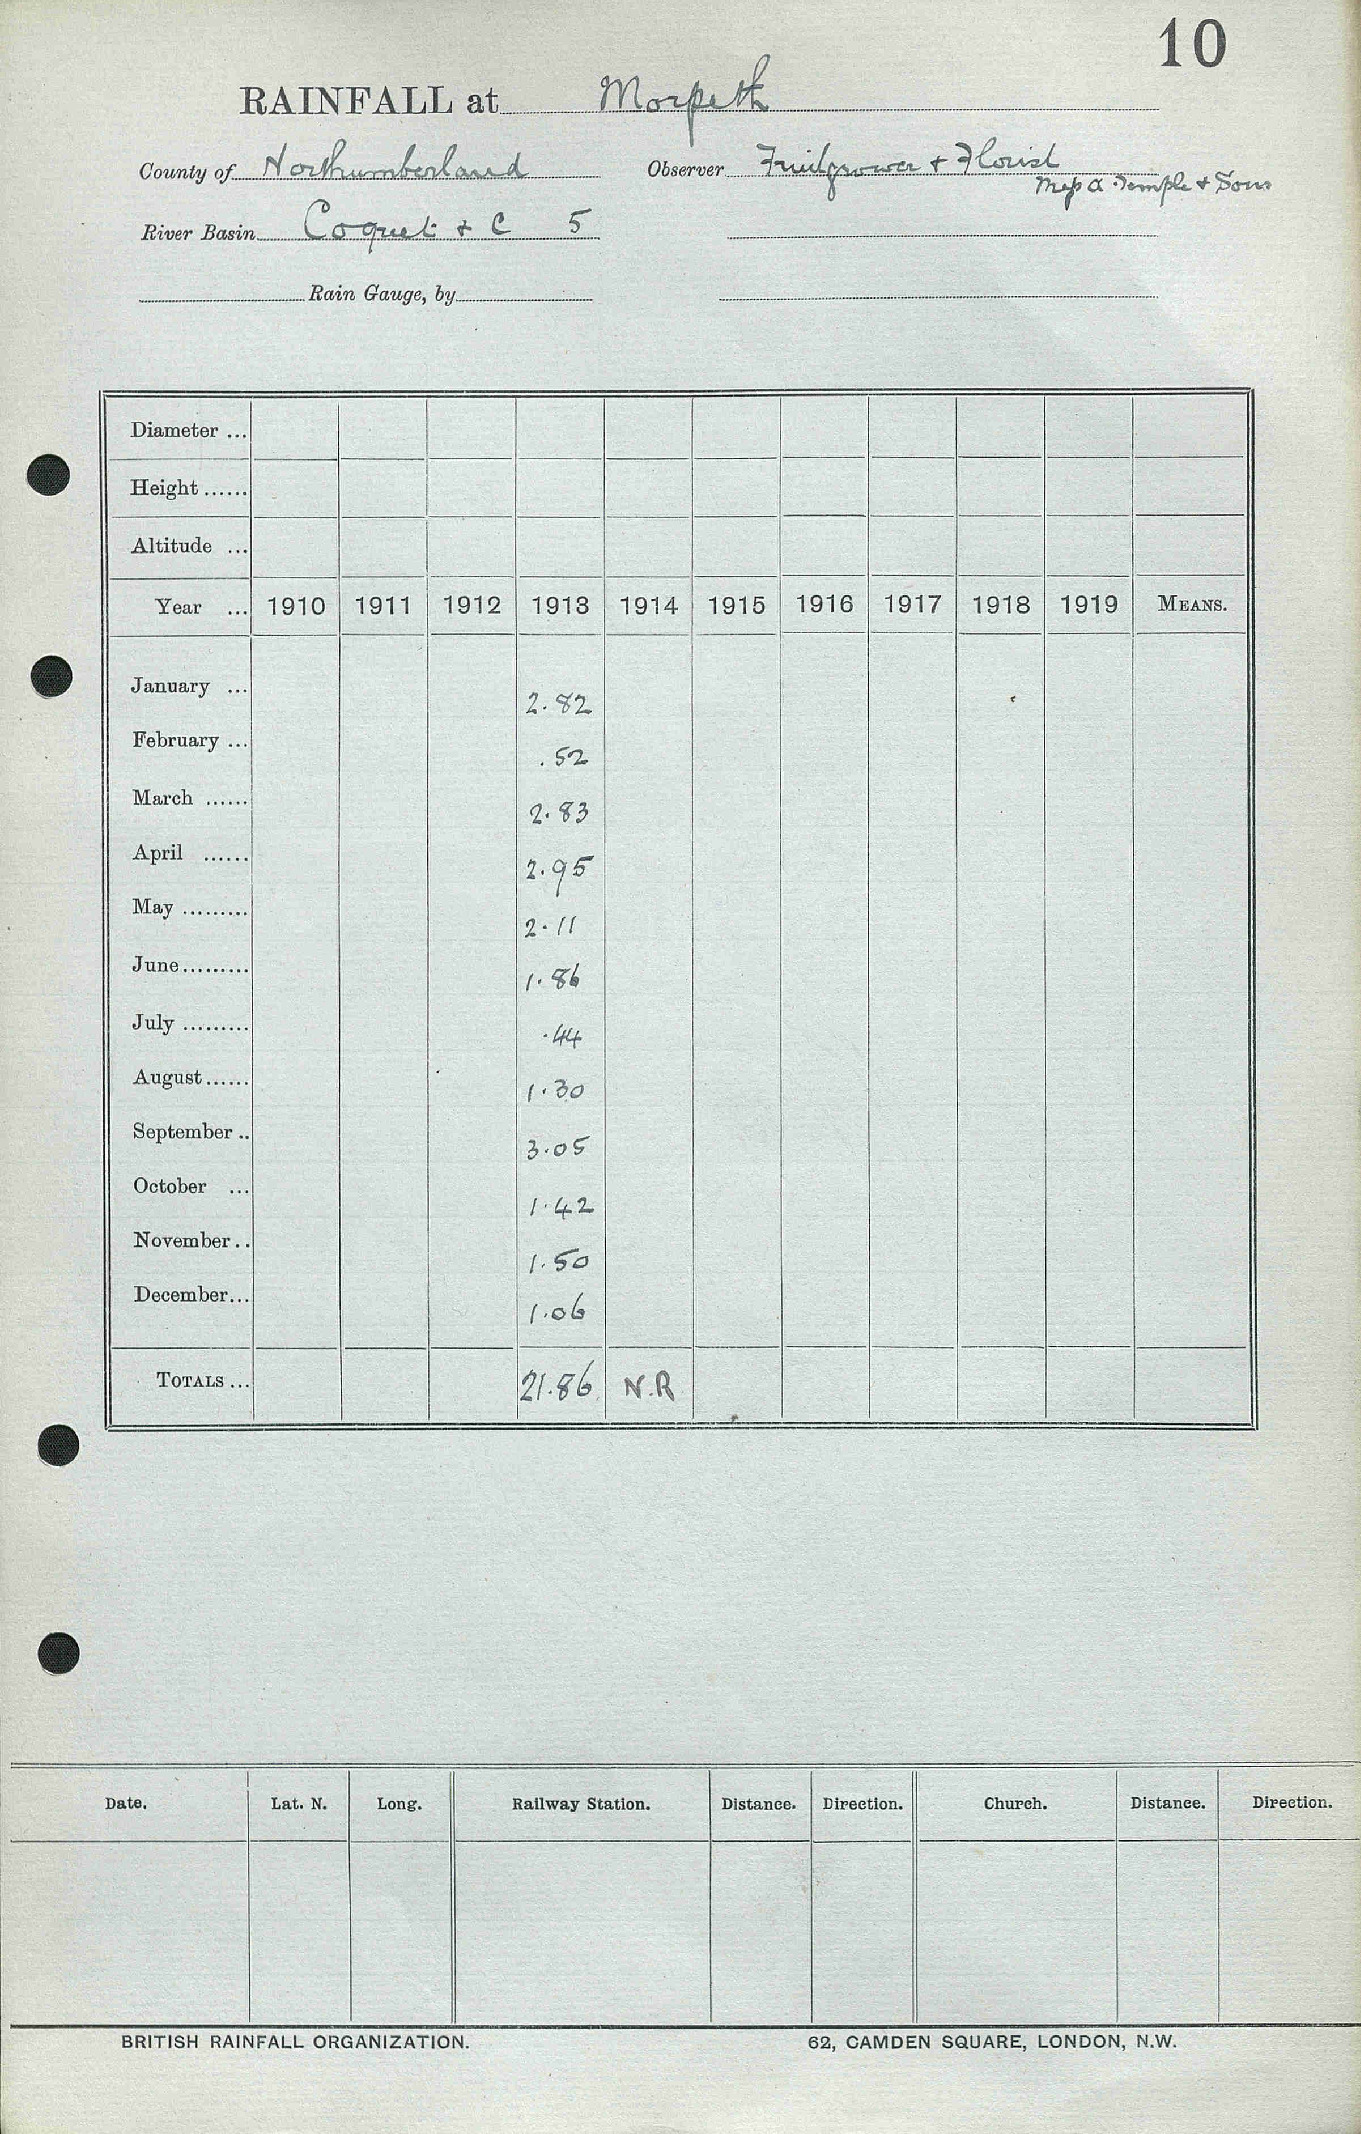 10
RAINFALL at Morpeth
County of Northumberland Observer Fruitgrower & Florist
Mess A. Temple & Sons
River Basin Coquet & C 5
Rain Gauge, by
Diameter ...
Height ......
Altitude ...
Year ... 1910 1911 1912 1913 1914 1915 1916 1917 1918 1919 MEANS.
January ... 2.82
February ... .52
March ...... 2.83
April ...... 2.95
May ......... 2.11
June ......... 1.86
July ......... .44
August ...... 1.30
September .. 3.05
October ... 1.42
November .. 1.50
December ... 1.06
TOTALS ... 21.86 N.R
Date. Lat. N. Long. Railway Station. Distance. Direction. Church. Distance. Direction.
BRITISH RAINFALL ORGANIZATION. 62, CAMDEN SQUARE, LONDON, N.W.